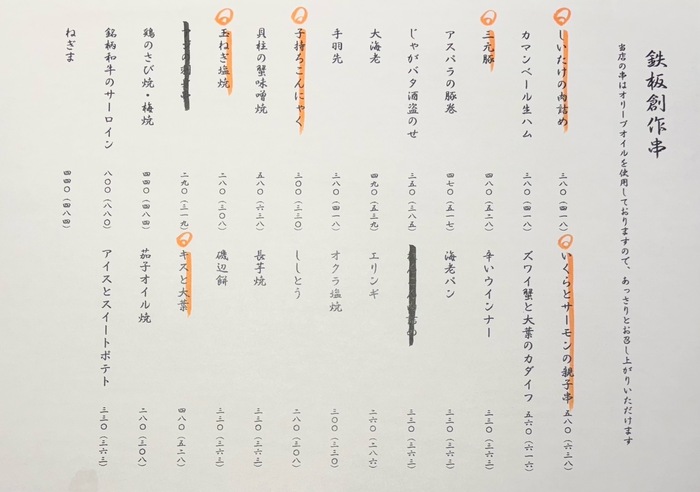 鉄板創作串
当店の串はオリーブオイルを使用しておりますので、あっさりとお召し上がりいただけます
しいたけの肉詰め 三八〇(四一八)
カマンベール生ハム 三八〇(四一八)
三元豚 四八〇(五二八)
アスパラの豚巻 四七〇(五一七)
じゃがバタ酒盗のせ 三五〇(三八五)
大海老 四九〇(五三九)
手羽先 三八〇(四一八)
子持ちこんにゃく 三〇〇(三三〇)
貝柱の蟹味噌焼 五八〇(六三八)
玉ねぎ塩焼 二八〇(三〇八)
二九〇(三一九)
鶏のさび焼・梅焼 四四〇(四八四)
銘柄和牛のサーロイン 八〇〇(八八〇)
ねぎま 四四〇(四八四)
いくらとサーモンの親子串 五八〇(六三八)
ズワイ蟹と大葉のカダイフ 五六〇(六一六)
辛いウインナー 三三〇(三六三)
海老パン 三三〇(三六三)
三三〇(三六三)
エリンギ 二六〇(二八六)
オクラ塩焼 三〇〇(三三〇)
ししとう 二八〇(三〇八)
長芋焼 三三〇(三六三)
磯辺餅 三三〇(三六三)
キスと大葉 四八〇(五二八)
茄子オイル焼 二八〇(三〇八)
アイスとスイートポテト 三三〇(三六三)